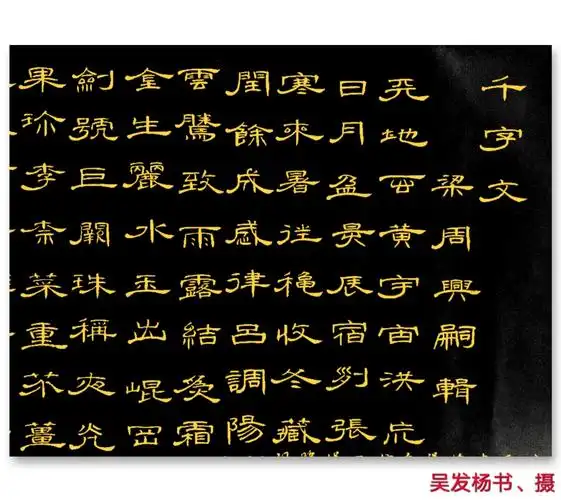 千字文
梁周興嗣輯
天地玄黃宇宙洪荒
日月盈昃辰宿列張
寒來暑往穐收冬藏
閏餘成歲律呂調陽
雲騰致雨露結為霜
金生麗水玉出崐岡
劍號巨闕珠稱夜光
果珍李柰菜重芥薑
吴发杨书、摄